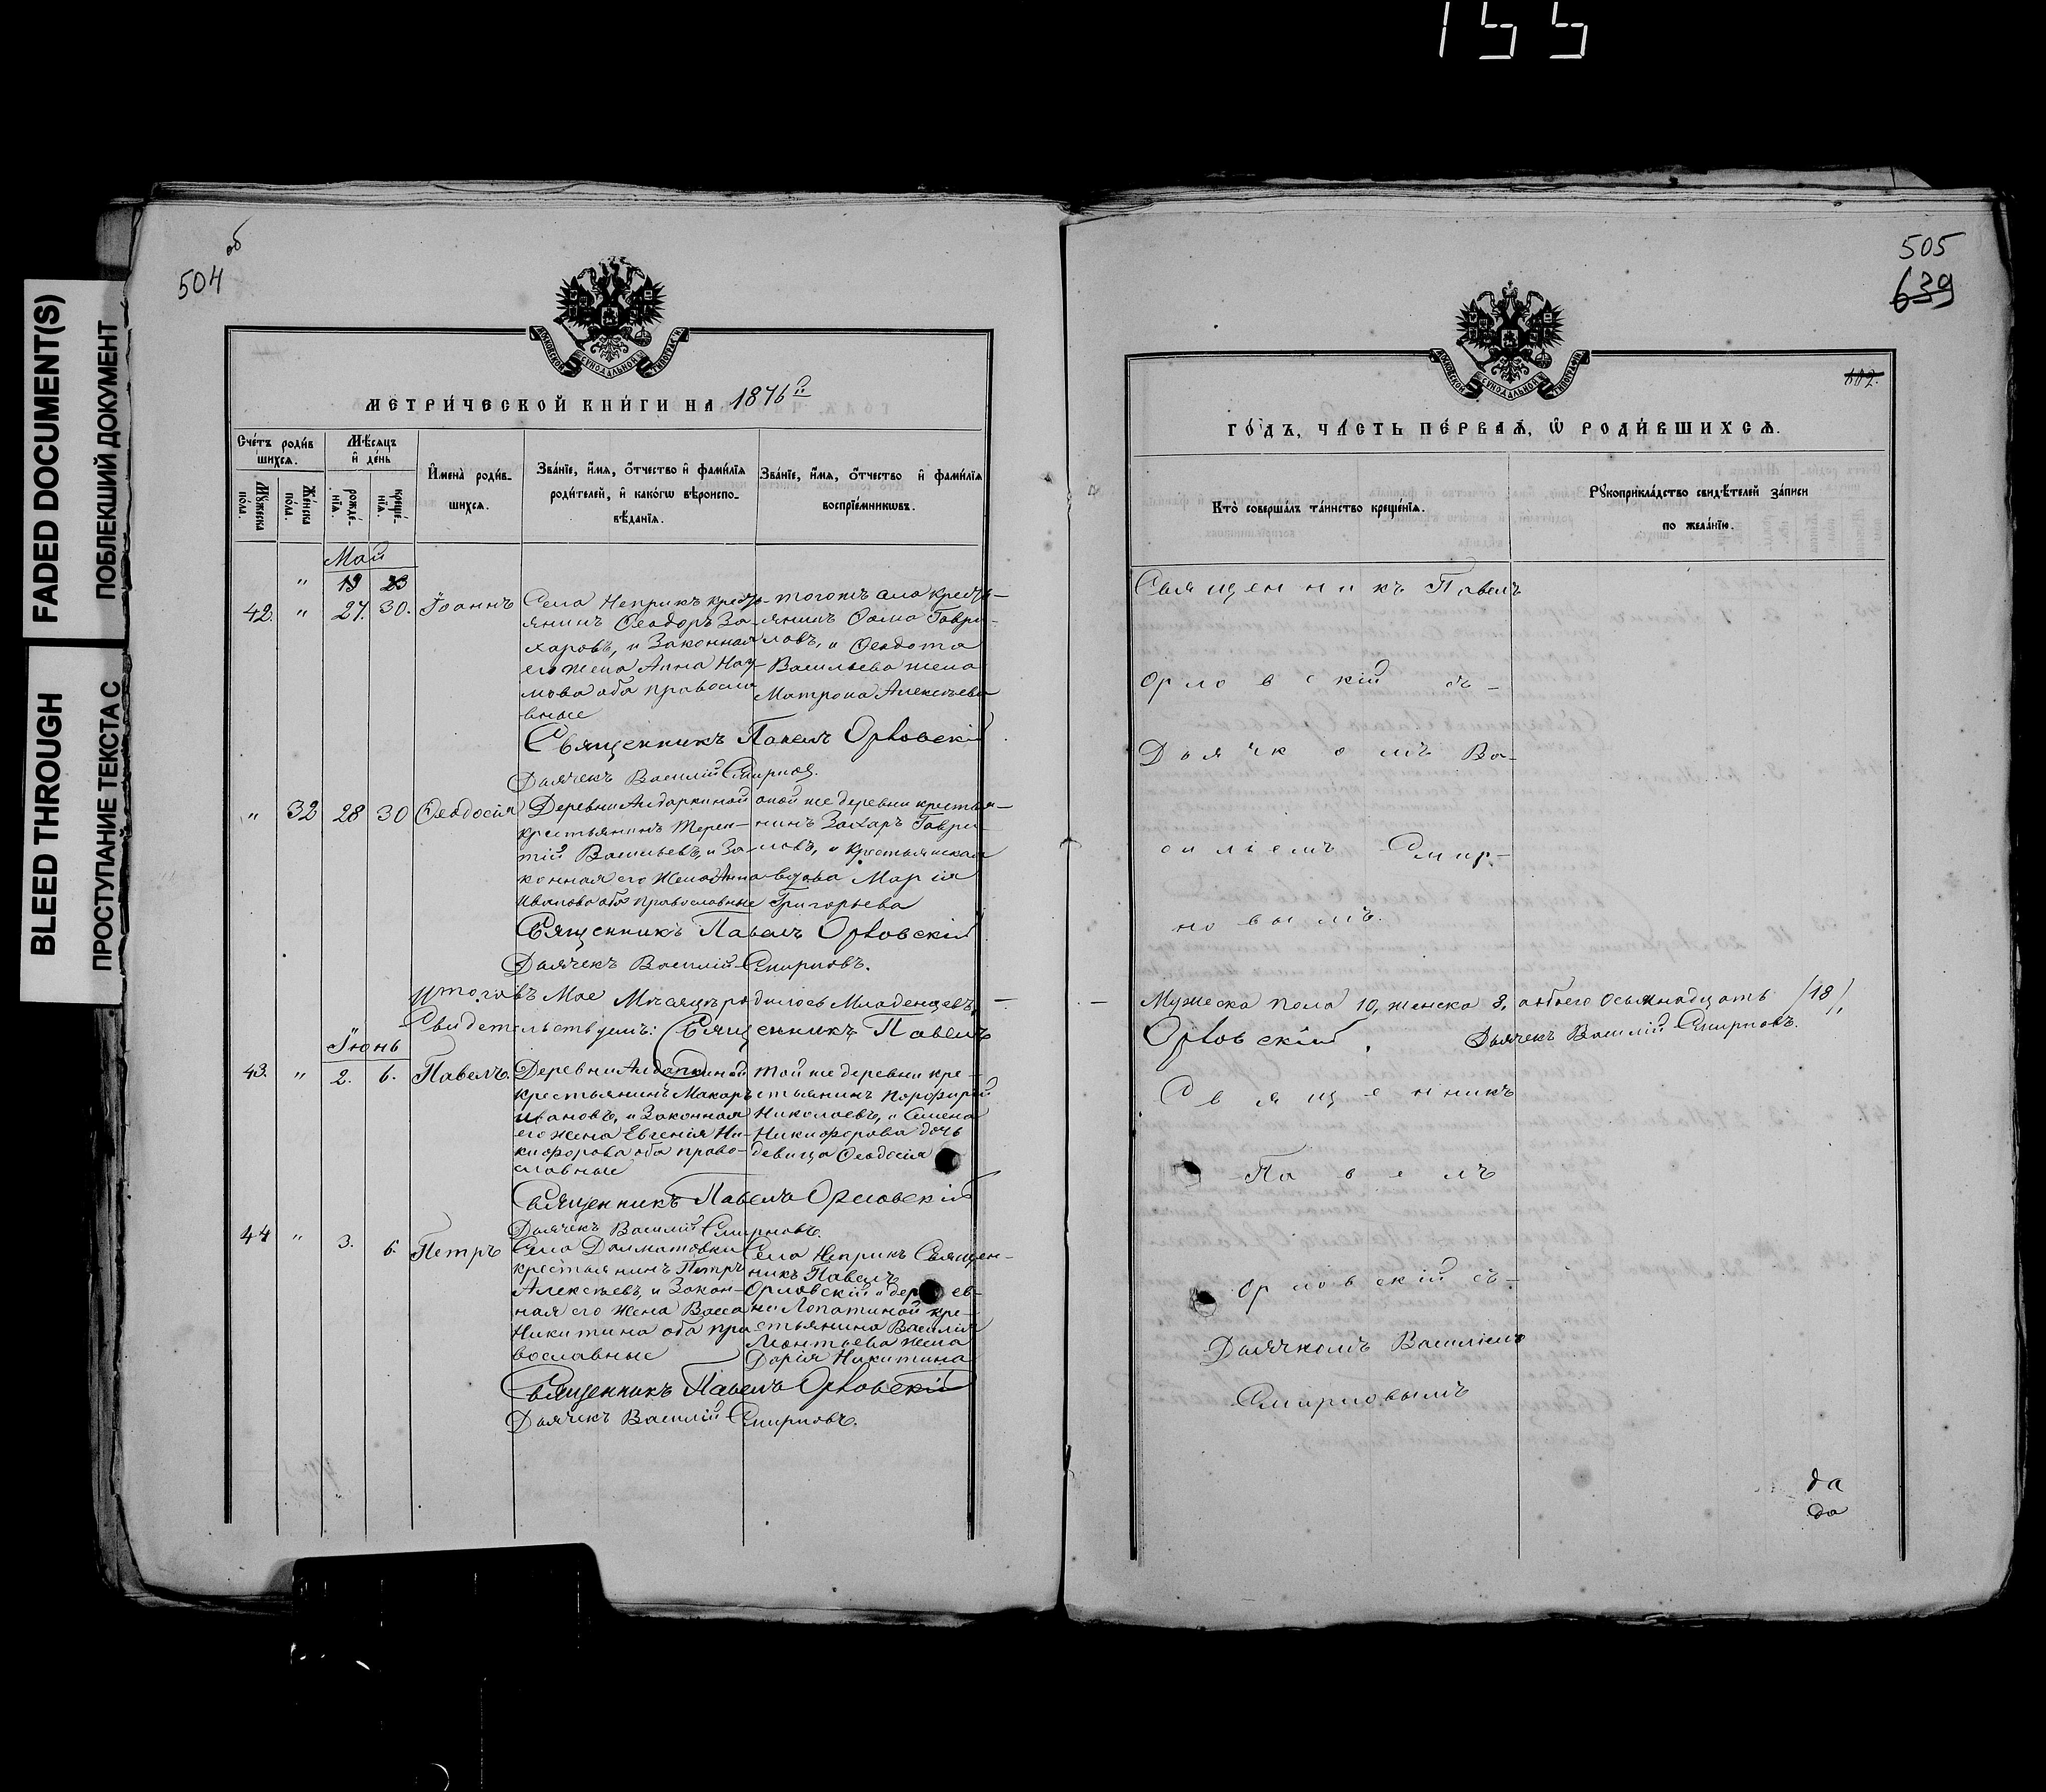 155
FADED DOCUMENT(S)
ПОБЛЕКШИЙ ДОКУМЕНТ
BLEED THROUGH
ПРОСТУПАНИЕ ТЕКСТА С
504 об
МОСКОВСКОЙ СѴНОДАЛЬНОЙ ТИПОГРАФІИ
МЕТРИЧЕСКОЙ КНИГИ НА 1876й
Счетъ родившихся.
Мужеска пола.
Женска пола.
Мѣсяцъ и день
рожденія.
крещенія.
Имена родившихся.
Званіе, имя, отчество и фамилія родителей, и какогѡ вѣроисповѣданія.
Званіе, имя, отчество и фамилія воспріемникѡвъ.
Май
" 19 23
42. " 27. 30. Іоаннъ
Села Неприкъ кресть-
янинъ Ѳеодоръ За-
харовъ, и Законная
его жена Анна Нау-
мова оба правосла
вные
тогожъ села кресть-
янинъ Ѳома Гаври-
ловъ, и Ѳеодота
Васильева жена
Матрона Алексѣева
Священникъ Павелъ Орловскій
Дьячекъ Василій Смирнов.
" 32 28 30 Ѳеодосія
Деревни Алдаркиной
крестьянинъ Терен-
тій Васильевъ, и За-
конная его жена Анна
Иванова оба православные
оной же деревни крестья-
нинъ Захаръ Гаври-
ловъ, и крестьянская
вдова Марія
Григорьева
Священникъ Павелъ Орловскій
Дьячекъ Василій Смирновъ.
Итого въ Мае Мѣсяцѣ родилось Младенцевъ, —
Свидетельствуемъ: Священникъ Павелъ
Іюнь
43. " 2. 6. Павелъ.
Деревни Алдаркиной
крестьянинъ Макаръ
Ивановъ, и Законная
его жена Евгенія Ни-
кифорова оба право-
славные
той же деревни кре-
стьянинъ Порфирій
Николаевъ, и Семена
Никифорова дочь
девица Ѳеодосія
Священникъ Павелъ Орловскій
Дьячекъ Василій Смирновъ.
44 " 3. 6. Петръ
Села Долматовки
крестьянинъ Петръ
Алексѣевъ, и Закон-
ная его жена Васса
Никитина оба пра
вославные
Села Неприкъ Священ-
никъ Павелъ
Орловскій и дер ев-
ни Лопатиной кре-
стьянина Василія
Леонтьева жена
Дарія Никитина
Священникъ Павелъ Орловскій
Дьячекъ Василій Смирновъ.
505
639
МОСКОВСКОЙ СѴНОДАЛЬНОЙ ТИПОГРАФІИ
ГОДЪ, ЧАСТЬ ПЕРВАЯ, Ѡ РОДИВШИХСЯ.
Кто совершалъ таинство крещенія.
Рукоприкладство свидѣтелей записи по желанію.
Священникъ Павелъ
Орловскій съ-
Дьячкомъ Ва-
силіемъ Смир-
новымъ.
— Мужеска пола 10, женска 8, обоего Осьмнадцать /18/,
Орловскій. Дьячекъ Василій Смирновъ.
Священникъ
Павелъ
Орловскій съ-
Дьячкомъ Василіемъ
Смирновымъ
да
да